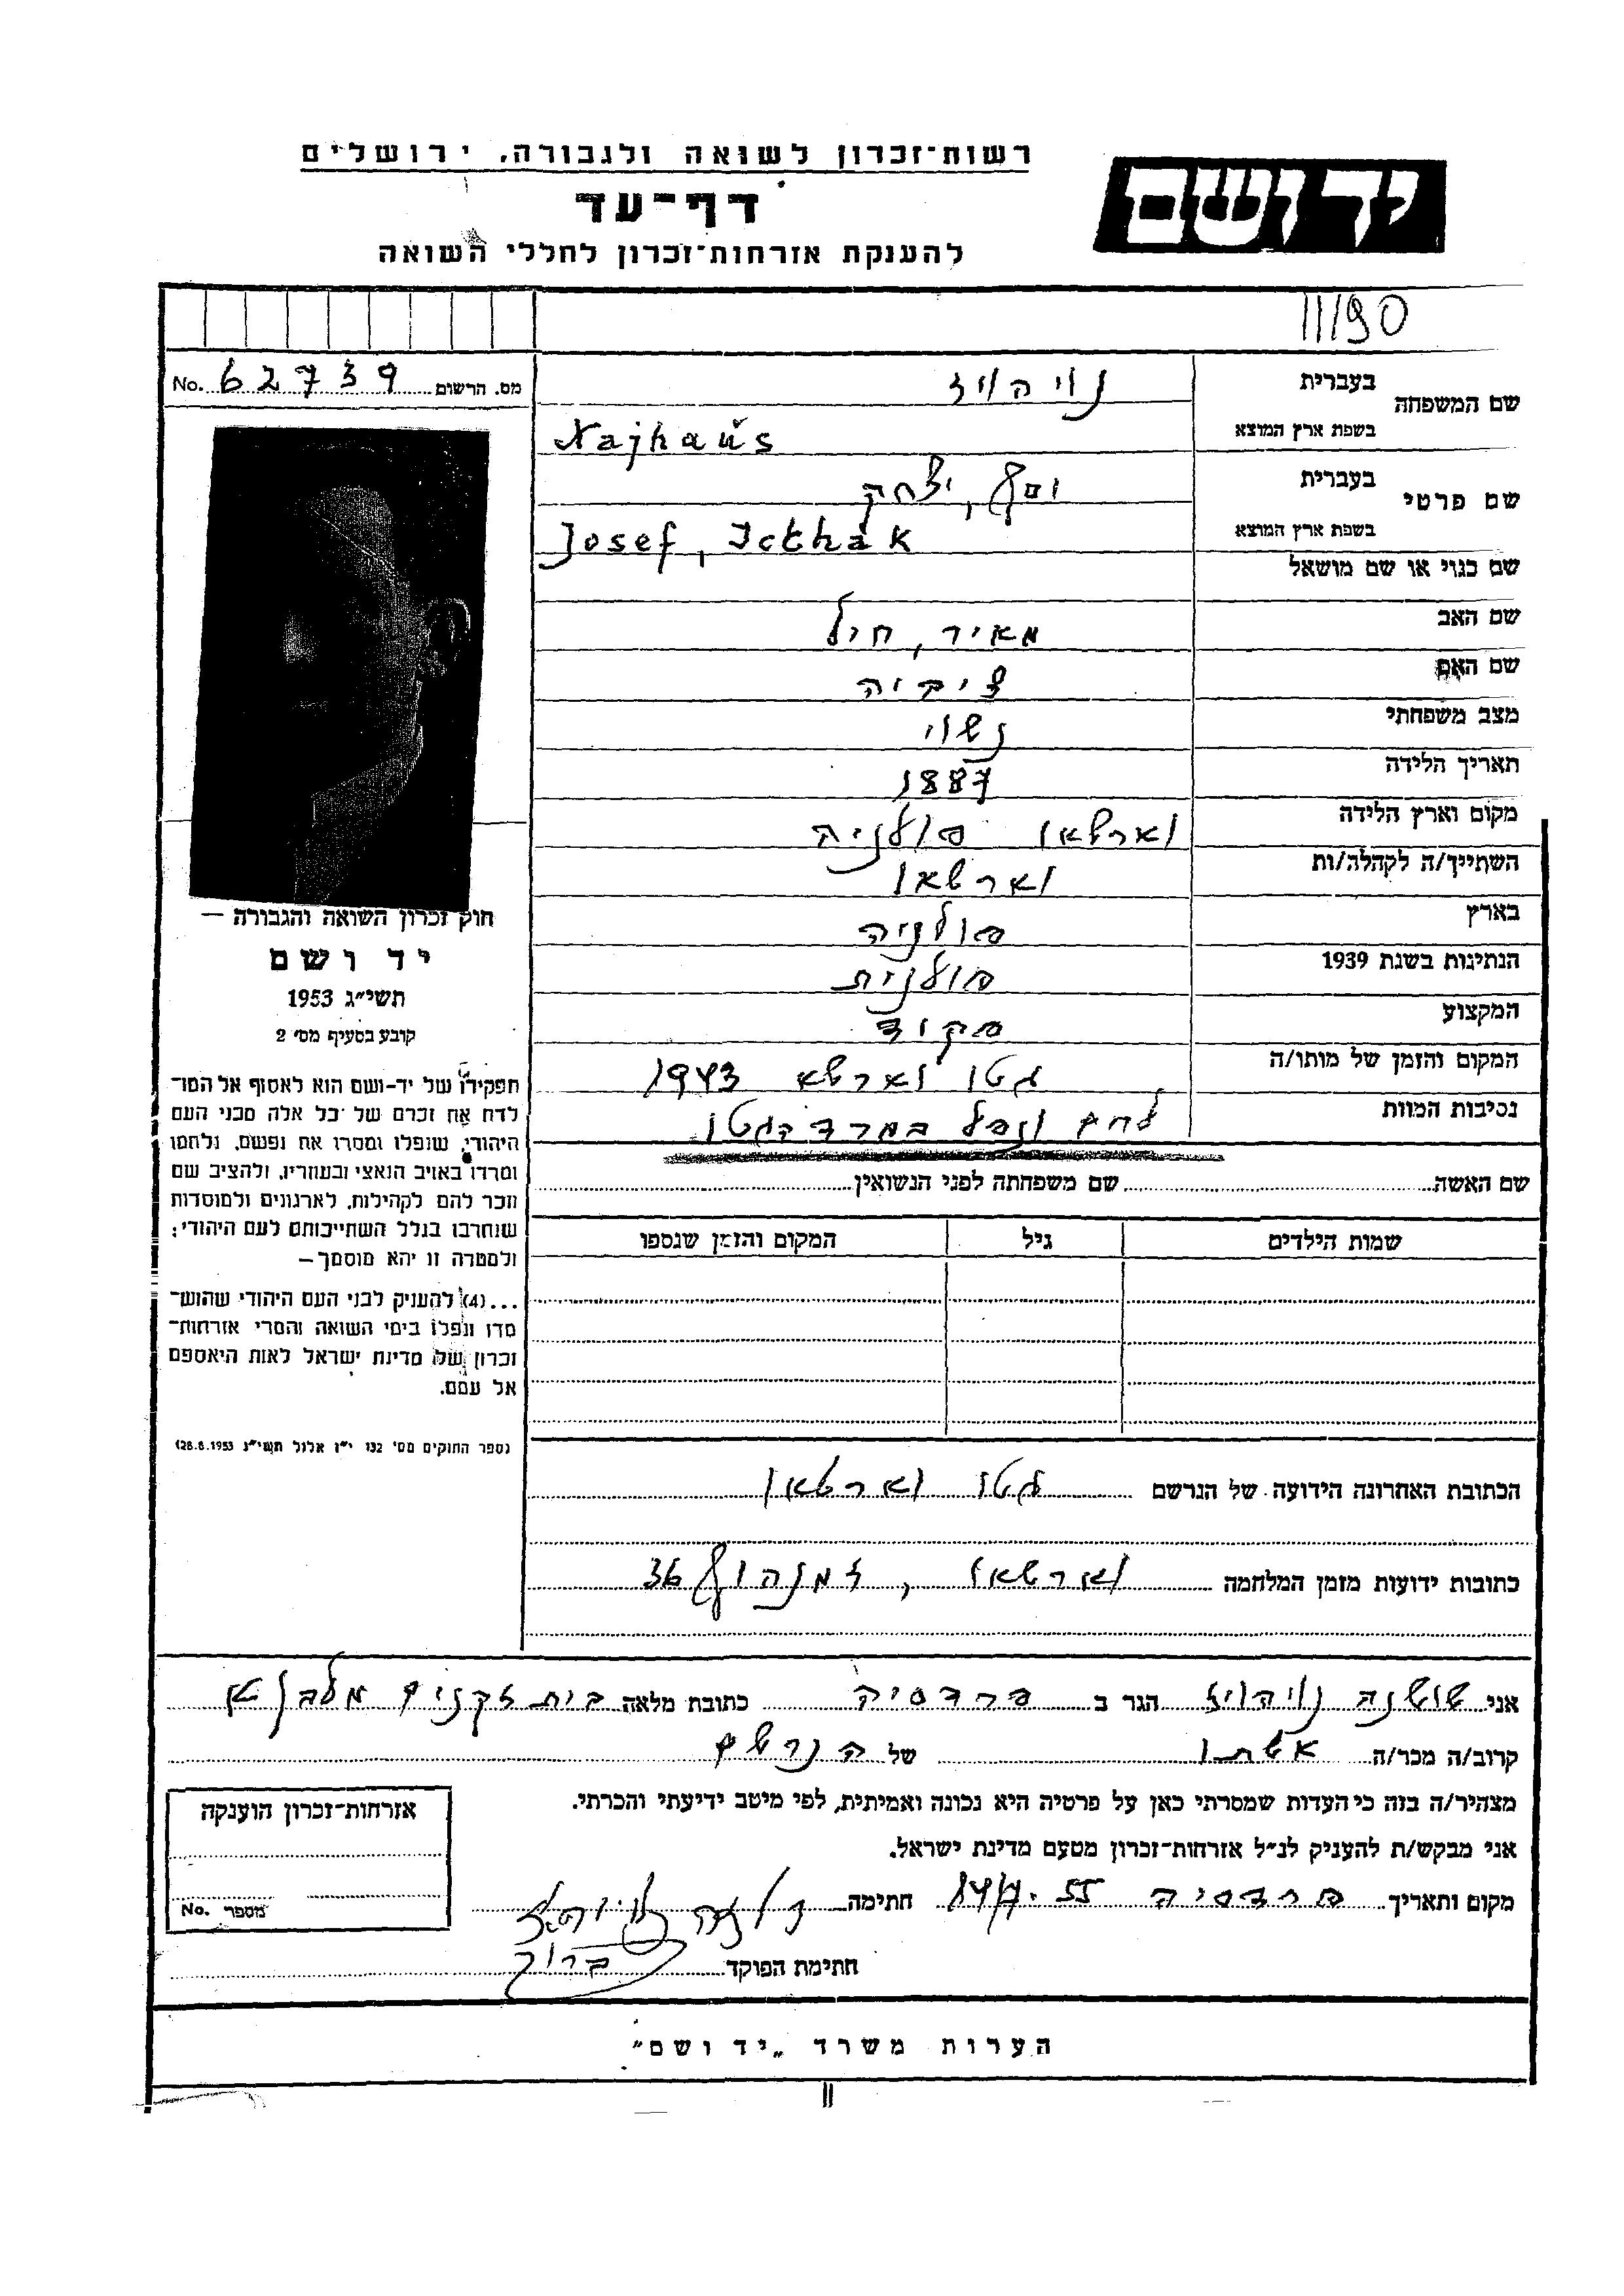 רשות־זכרון לשואה ולגבורה, ירושלים
יד ושם
דף־עד
להענקת אזרחות־זכרון לחללי השואה
11/90
מס. הרשום 62739 No.
שם המשפחה
בעברית נויהויז
בשפת ארץ המוצא Najhaus
שם פרטי
בעברית יוסף, יצחק
בשפת ארץ המוצא Josef, Ickhak
שם כנוי או שם מושאל
שם האב מאיר, חיל
שם האם ציביה
מצב משפחתי נשוי
תאריך הלידה 1887
מקום וארץ הלידה וארשאו פולניה
השתייך/ה לקהלה/ות וארשאו
בארץ פולניה
הנתינות בשנת 1939 פולנית
המקצוע פקיד
המקום והזמן של מותו/ה גטו וארשא 1943
נסיבות המוות לחם ונפל במרד הגטו
שם האשה שם משפחתה לפני הנשואין
שמות הילדים גיל המקום והזמן שנספו
חוק זכרון השואה והגבורה —
יד ושם
תשי״ג 1953
קובע בסעיף מס׳ 2
תפקידו של יד-ושם הוא לאסוף אל המו־
לדת את זכרם של כל אלה מבני העם
היהודי, שנפלו ומסרו את נפשם, נלחמו
ומרדו באויב הנאצי ובעוזריו, ולהציב שם
וזכר להם לקהילות, לארגונים ולמוסדות
שנחרבו בגלל השתייכותם לעם היהודי;
ולמטרה זו יהא מוסמך —
...(4) להעניק לבני העם היהודי שהוש־
מדו ונפלו בימי השואה והמרי אזרחות־
זכרון של מדינת ישראל לאות היאספם
אל עמם.
(ספר החוקים מס׳ 132 י״ז אלול תשי״ג 28.8.1953)
הכתובת האחרונה הידועה של הנרשם גטו וארשאו
כתובות ידועות מזמן המלחמה וארשאו, זמנהוף 36
אני שושנה נויהויז הגר ב פרדסיה כתובת מלאה בית זקנים מלבן
קרוב/ה מכר/ה אשתו של הנרשם
מצהיר/ה בזה כי העדות שמסרתי כאן על פרטיה היא נכונה ואמיתית, לפי מיטב ידיעתי והכרתי.
אני מבקש/ת להעניק לנ״ל אזרחות־זכרון מטעם מדינת ישראל.
מקום ותאריך פרדסיה 55 חתימה
חתימת הפוקד ברוך
אזרחות־זכרון הוענקה
מספר No.
הערות משרד „יד ושם״